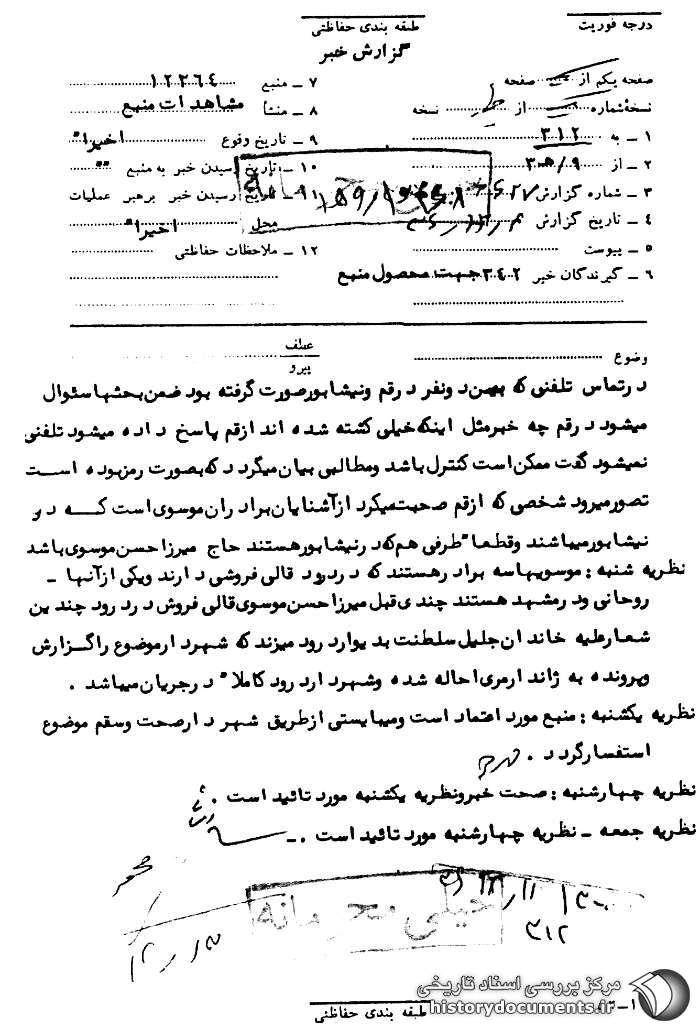 درجه فوریت
طبقه بندی حفاظتی
گزارش خبر
صفحه یکم از صفحه
۷ ــ منبع ۱۲۲۶۴
نسخهٔ شماره از نسخه
۸ ــ منشأ مشاهدات منبع
۱ ــ به ۳۱۲
۹ ــ تاریخ وقوع اخیراً
۲ ــ از ۹/ه۳
۱۰ ــ تاریخ رسیدن خبر به منبع "
۳ ــ شماره گزارش
۱۱ ــ تاریخ رسیدن خبر برهبر عملیات محل اخیراً
۴ ــ تاریخ گزارش
۵ ــ پیوست
۱۲ ــ ملاحظات حفاظتی
۶ ــ گیرندگان خبر ۳۴۲ جهت محصول منبع
وضوع
عطف
پیرو
درتماس تلفنی که بهین دونفر درقم ونیشابورصورت گرفته بود ضمن بحثها سئوال
میشود درقم چه خبرمثل اینکه خیلی کشته شده اند ازقم پاسخ داده میشود تلفنی
نمیشود گفت ممکن است کنترل باشد ومطالبی بیان میگردد که بصورت رمزبوده است
تصورمیرود شخصی که ازقم صحبت میکرد ازآشنایان برادران موسوی است که در
نیشابورمیباشند وقطعاً طرفی هم که درنیشابورهستند حاج میرزا حسن موسوی باشد
نظریه شنبه : موسویهاسه برادرهستند که دردرود قالی فروشی دارند ویکی ازآنها ــ
روحانی ودرمشهد هستند چندی قبل میرزا حسن موسوی قالی فروش دردرود چندین
شعارعلیه خاندان جلیل سلطنت بدیواردرود میزند که شهردارموضوع راگزارش
وپرونده به ژاندارمری احاله شده وشهرداردرود کاملاً درجریان میباشد .
نظریه یکشنبه : منبع مورد اعتماد است ومیبایستی ازطریق شهردارصحت وسقم موضوع
استفسارگردد .
نظریه چهارشنبه : صحت خبرونظریه یکشنبه مورد تائید است .
نظریه جمعه ــ نظریه چهارشنبه مورد تائید است .ــ
خیلی محرمانه
۳۱۲
۱ــ۱۲
طبقه بندی حفاظتی
مرکز بررسی اسناد تاریخی
historydocuments.ir